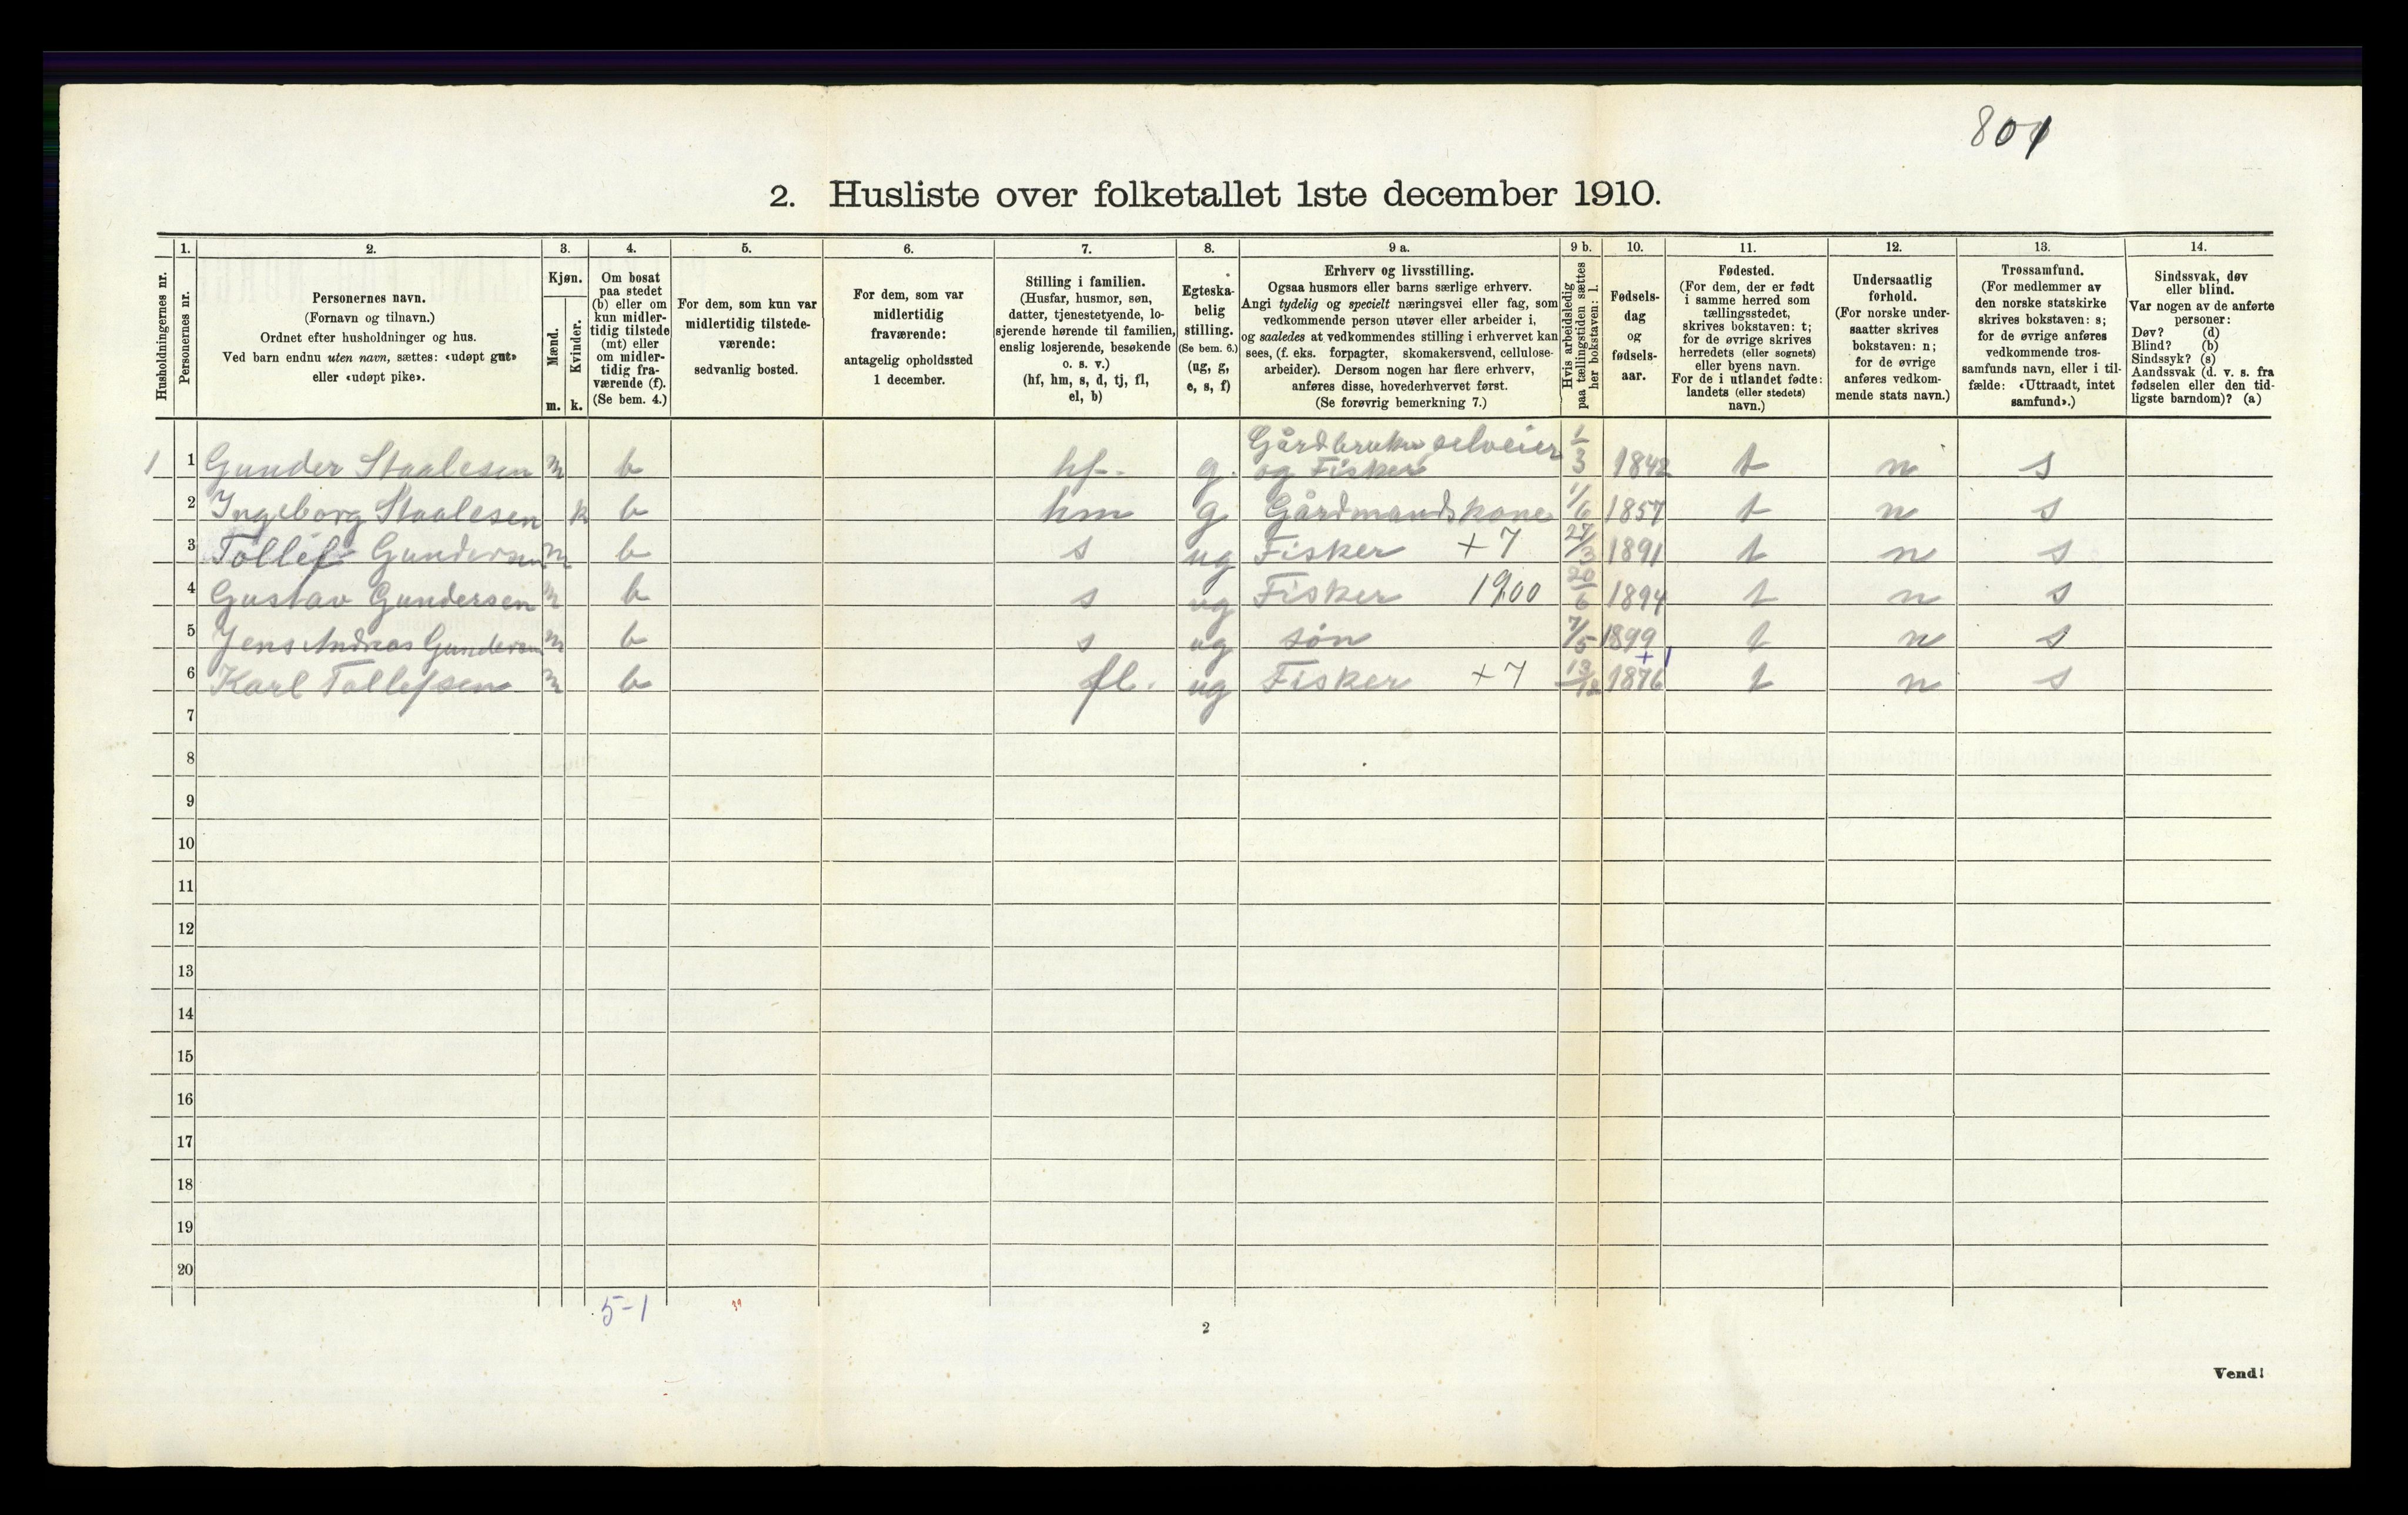 801
2. Husliste over folketallet 1ste december 1910.
Husholdningernes nr.
1. Personernes nr.
2. Personernes navn.
(Fornavn og tilnavn.)
Ordnet efter husholdninger og hus.
Ved barn endnu uten navn, sættes: «udøpt gut»
eller «udøpt pike».
3. Kjøn.
Mænd. m.
Kvinder. k.
4. Om bosat
paa stedet
(b) eller om
kun midler-
tidig tilstede
(mt) eller
om midler-
tidig fra-
værende (f).
(Se bem. 4.)
5. For dem, som kun var
midlertidig tilstede-
værende:
sedvanlig bosted.
6. For dem, som var
midlertidig
fraværende:
antagelig opholdssted
1 december.
7. Stilling i familien.
(Husfar, husmor, søn,
datter, tjenestetyende, lo-
sjerende hørende til familien,
enslig losjerende, besøkende
o. s. v.)
(hf, hm, s, d, tj, fl,
el, b)
8. Egteska-
belig
stilling.
(Se bem. 6.)
(ug, g,
e, s, f)
9 a. Erhverv og livsstilling.
Ogsaa husmors eller barns særlige erhverv.
Angi tydelig og specielt næringsvei eller fag, som
vedkommende person utøver eller arbeider i,
og saaledes at vedkommendes stilling i erhvervet kan
sees, (f. eks. forpagter, skomakersvend, cellulose-
arbeider). Dersom nogen har flere erhverv,
anføres disse, hovederhvervet først.
(Se forøvrig bemerkning 7.)
9 b. Hvis arbeidsledig
paa tællingstiden sættes
her bokstaven: l.
10. Fødsels-
dag
og
fødsels-
aar.
11. Fødested.
(For dem, der er født
i samme herred som
tællingsstedet,
skrives bokstaven: t;
for de øvrige skrives
herredets (eller sognets)
eller byens navn.
For de i utlandet fødte:
landets (eller stedets)
navn.)
12. Undersaatlig
forhold.
(For norske under-
saatter skrives
bokstaven: n;
for de øvrige
anføres vedkom-
mende stats navn.)
13. Trossamfund.
(For medlemmer av
den norske statskirke
skrives bokstaven: s;
for de øvrige anføres
vedkommende tros-
samfunds navn, eller i til-
fælde: «Uttraadt, intet
samfund».)
14. Sindssvak, døv
eller blind.
Var nogen av de anførte
personer:
Døv? (d)
Blind? (b)
Sindssyk? (s)
Aandssvak (d. v. s. fra
fødselen eller den tid-
ligste barndom)? (a)
1 1 Gunder Staalesen m b hf. g. Gårdbruker selveier og Fisker 1/3 1842 t n s
2 Ingeborg Staalesen k b hm g Gårdmandskone 1/6 1857 t n s
3 Tollef Gundersen m b s ug Fisker +7 27/3 1891 t n s
4 Gustav Gundersen m b s ug Fisker 1900 20/6 1894 t n s
5 Jens Andreas Gundersen m b s ug søn 7/5 1899 t n s
6 Karl Tollefsen m b fl. ug Fisker +7 13/12 1876 t n s
7
8
9
10
11
12
13
14
15
16
17
18
19
20
5-1
2
Vend!